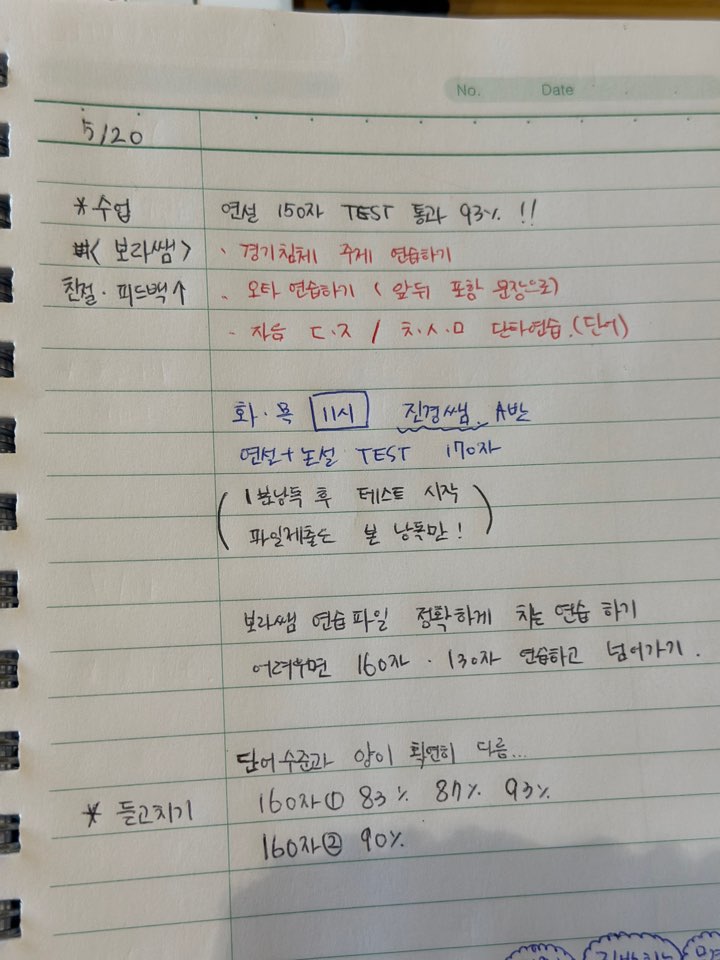 No. Date
5/20
*수업 연설 150자 TEST 통과 93% !!
#< 보라쌤 > · 경기침체 주제 연습하기
친절·피드백↑ · 오타 연습하기 ( 앞뒤 포함 문장으로)
· 자음 ㄷ·ㅈ / ㅊ·ㅅ·ㅁ 단타연습.(단어)
화·목 11시 진경쌤. A반
연설+논설 TEST 170자
(1분낭독 후 테스트 시작
파일제출은 본 낭독만!)
보라쌤 연습파일 정확하게 치는 연습 하기
어려우면 160자 · 130자 연습하고 넘어가기.
단어수준과 양이 확연히 다름...
* 듣고치기 160자① 83% 87% 93%
160자② 90%